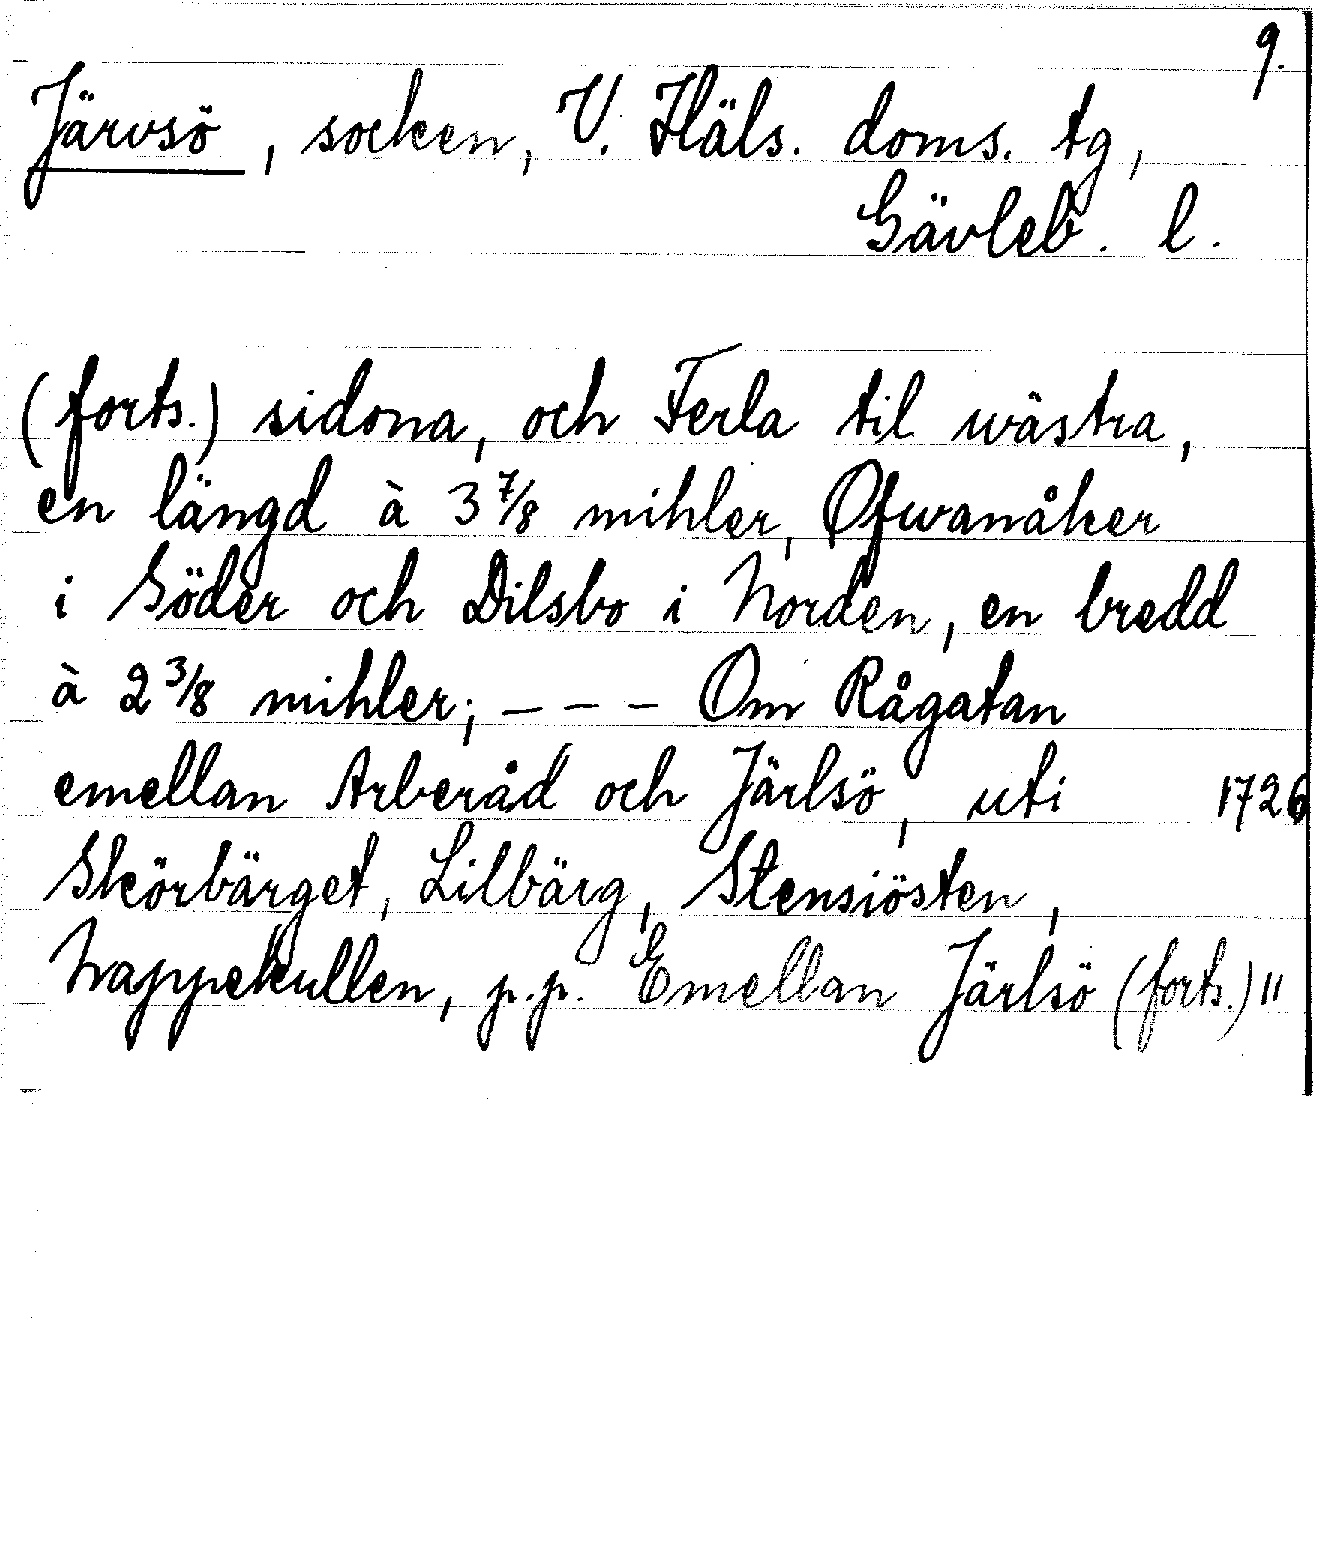 9.
Järvsö, socken, V. Häls. doms. tg,
Gävleb. l.
(forts.) sidona, och Ferla til wästra,
en längd à 3 7/8 mihler, Ofwanåker
i Söder och Dilsbo i Norden, en bredd
à 2 3/8 mihler; - - - Om Rågatan
emellan Arberåd och Järlsö, uti 1726
Skörbärget, Lilbärg, Stensiösten,
Nappekullen, p.p. Emellan Järlsö (forts.) "